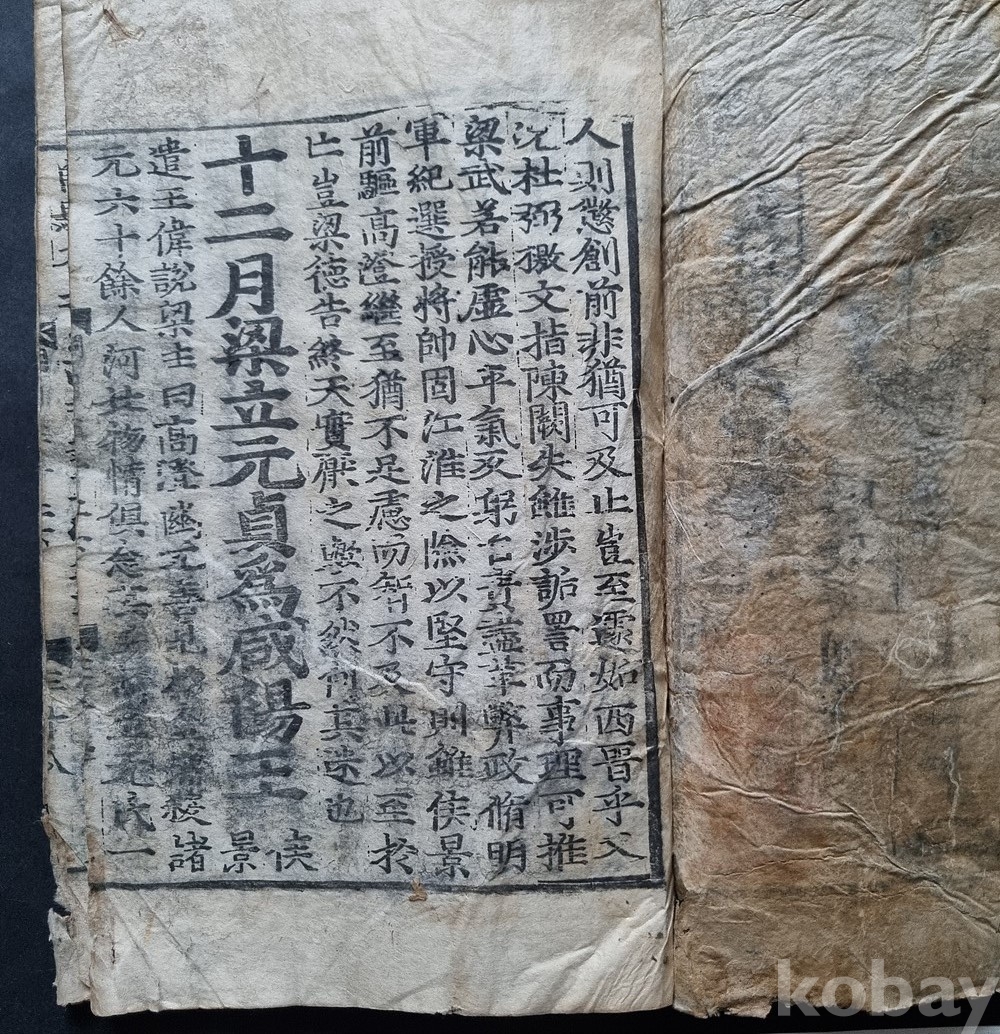 人則懲創前非猶可及止豈至遽如西晋乎又
况杜弼檄文指陳闕失雖涉詬詈而事理可推
梁武若能虛心平氣反躬書盡革弊政脩明
軍紀選授將帥固江淮之險以堅守則雖侯景
前驅高澄繼至猶不足慮而智不及此以至於
亡豈梁德告終天實厭之歟不然何其迷也
十二月梁立元貞爲咸陽王 侯景
遣王偉說梁主曰高澄幽元善見於諸
元六十餘人河北物情俱念其主元氏一
kobay